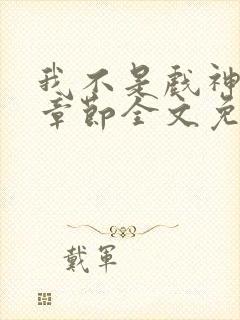 我不是戲神
章節全文免
戴軍